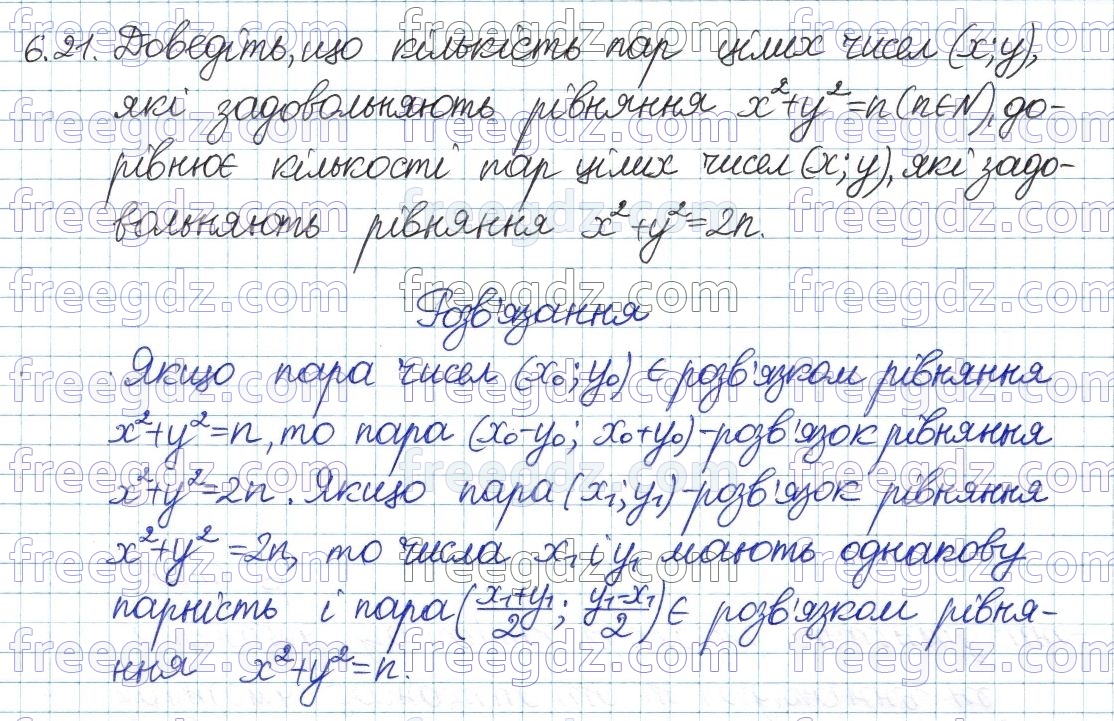 6.21. Доведіть, що кількість пар цілих чисел (x; y),
які задовольняють рівняння x²+y²=n (n∈N), до-
рівнює кількості пар цілих чисел (x; y), які задо-
вольняють рівняння x²+y²=2n.
Розв'язання
Якщо пара чисел (x₀; y₀) є розв'язком рівняння
x²+y²=n, то пара (x₀-y₀; x₀+y₀) - розв'язок рівняння
x²+y²=2n. Якщо пара (x₁; y₁) - розв'язок рівняння
x²+y²=2n, то числа x₁ і y₁ мають однакову
парність і пара ((x₁+y₁)/2; (y₁-x₁)/2) є розв'язком рівня-
ння x²+y²=n.